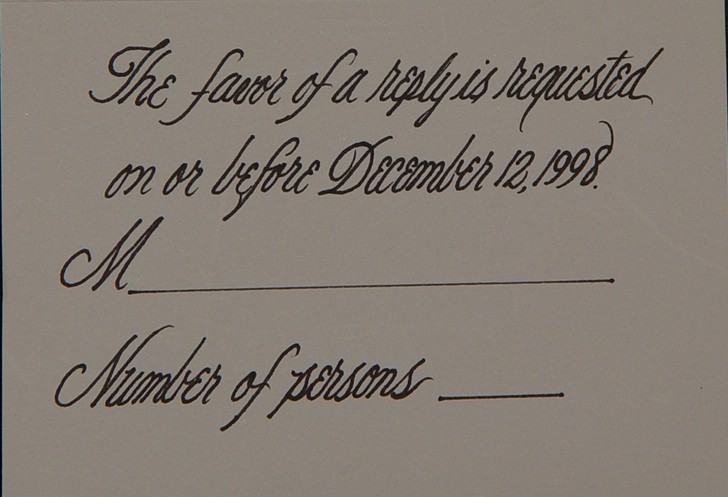 The favor of a reply is requested
on or before December 12, 1998.
M
Number of persons